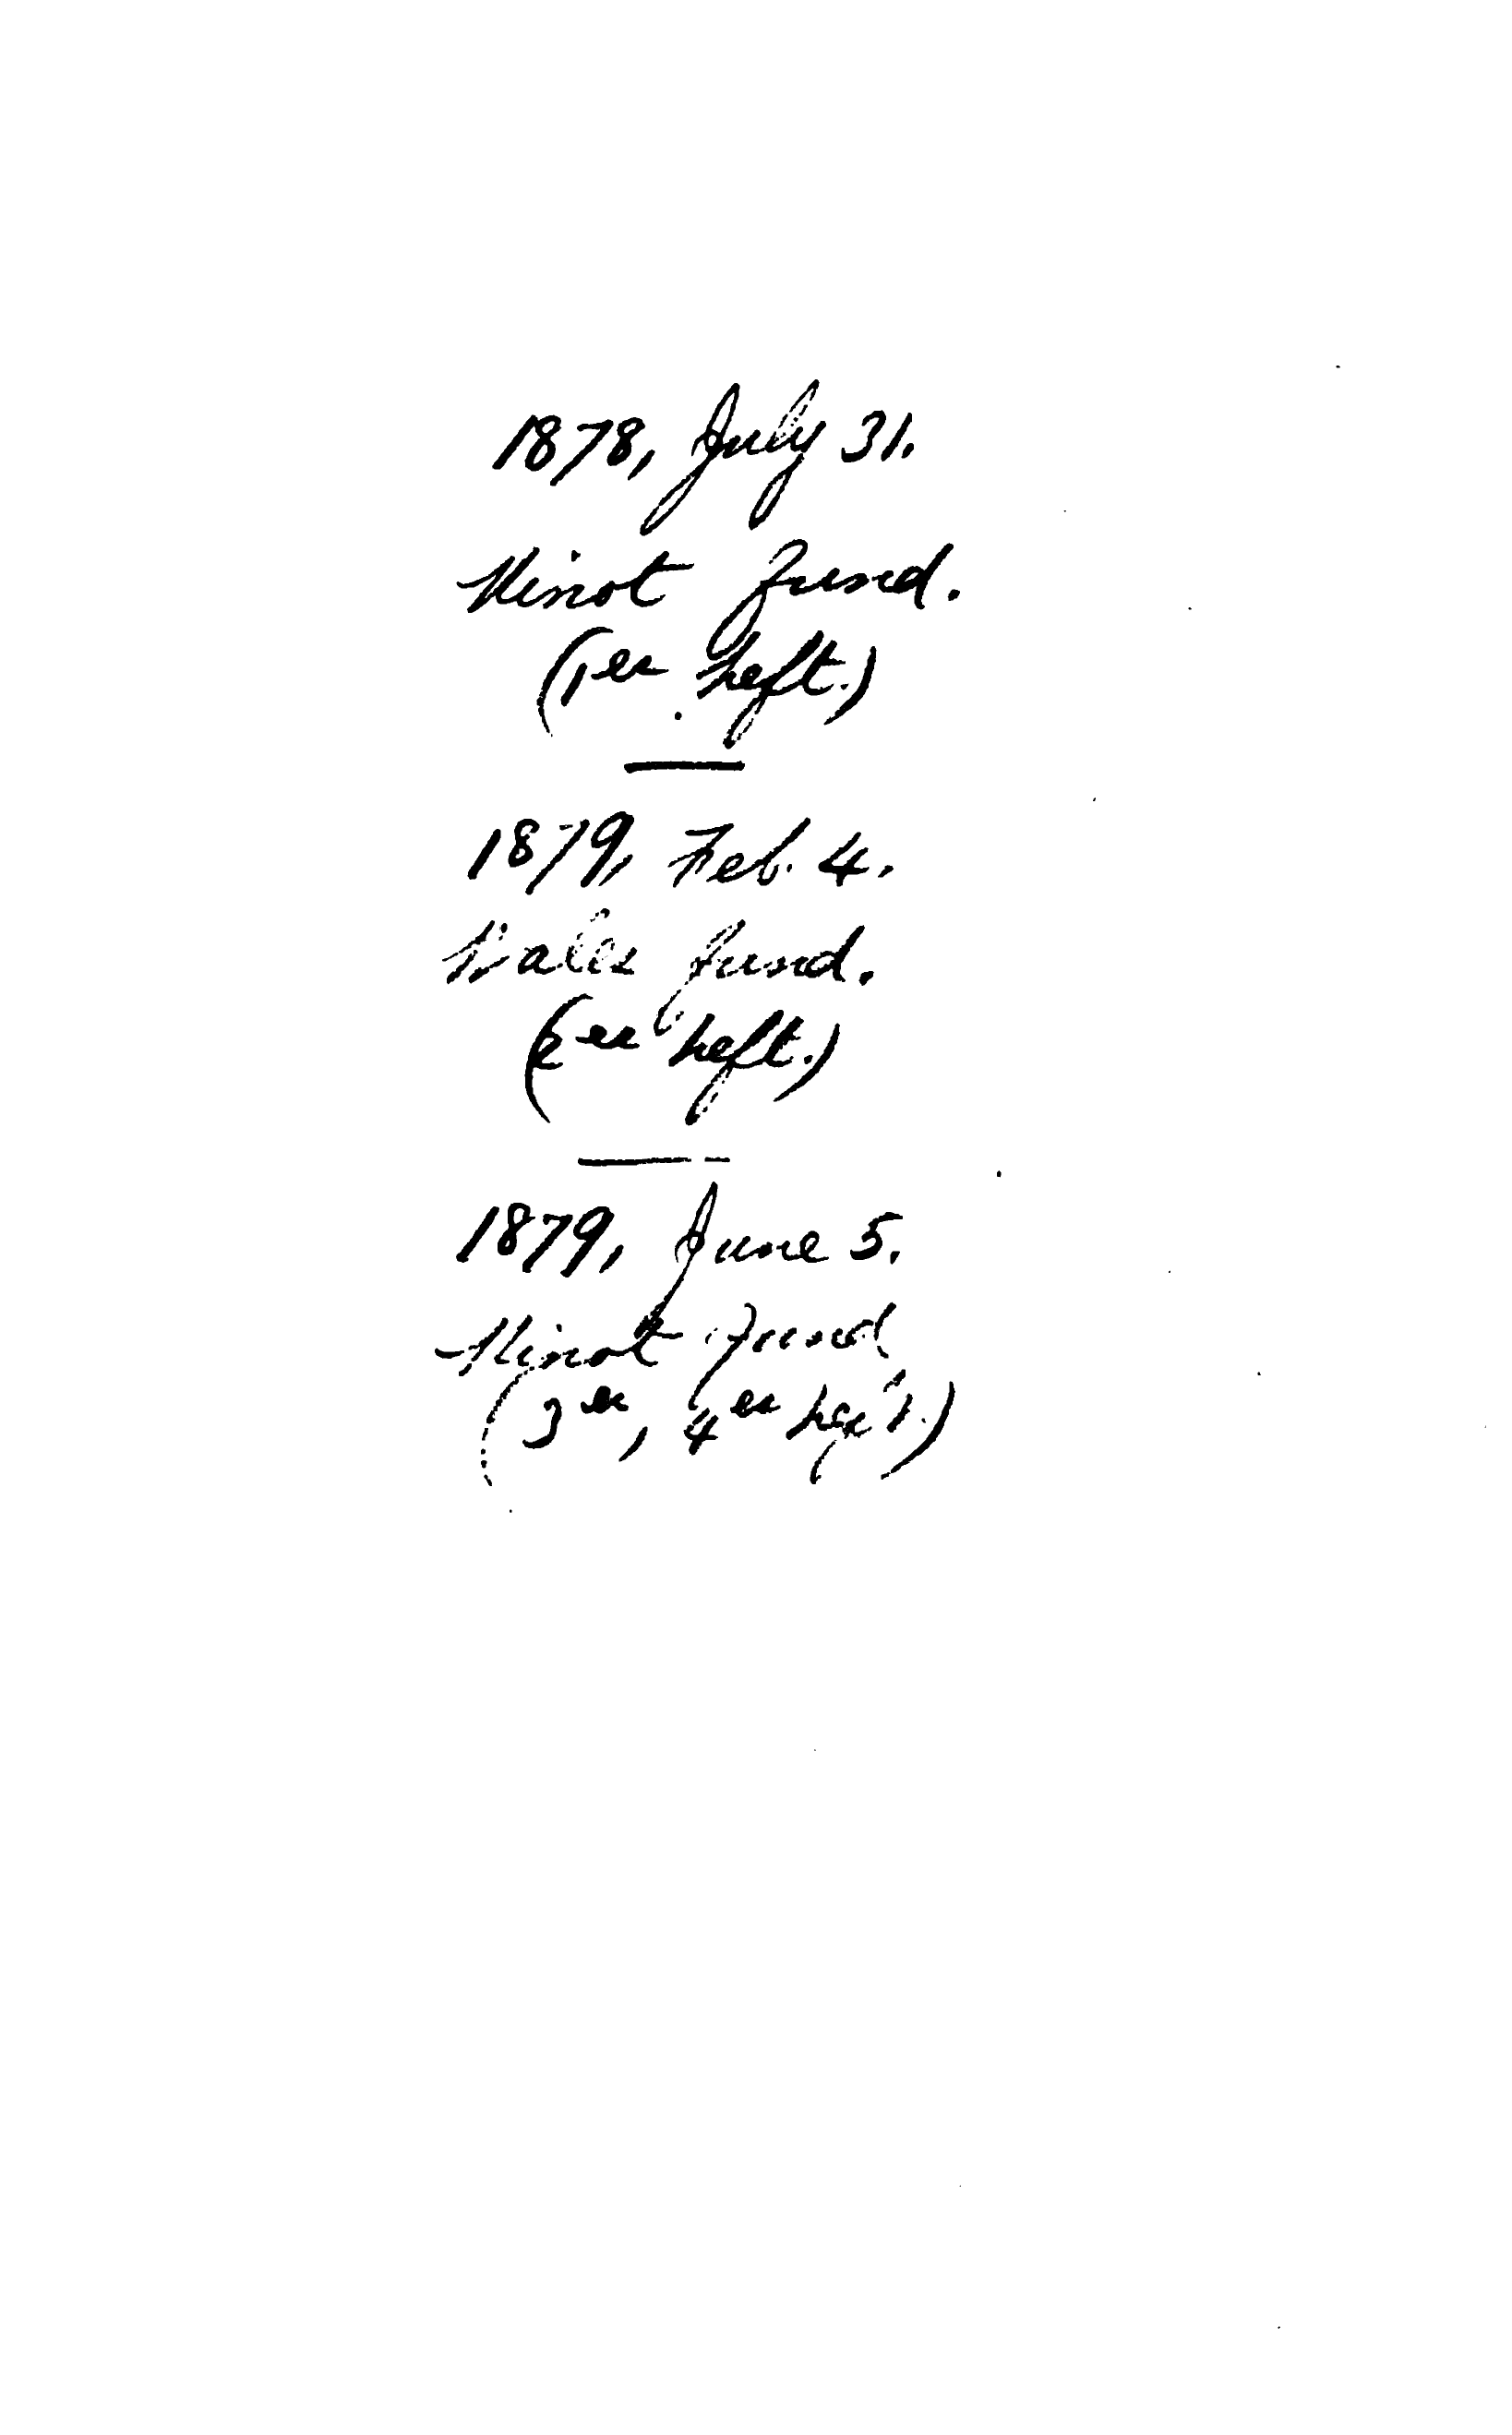 1878, July 31.
Minot fund.
(1er heft.)
1879, Feb. 4.
Wales fund.
(2er heft.)
1879, June 5.
Minot fund
(3er, 4er heft.)